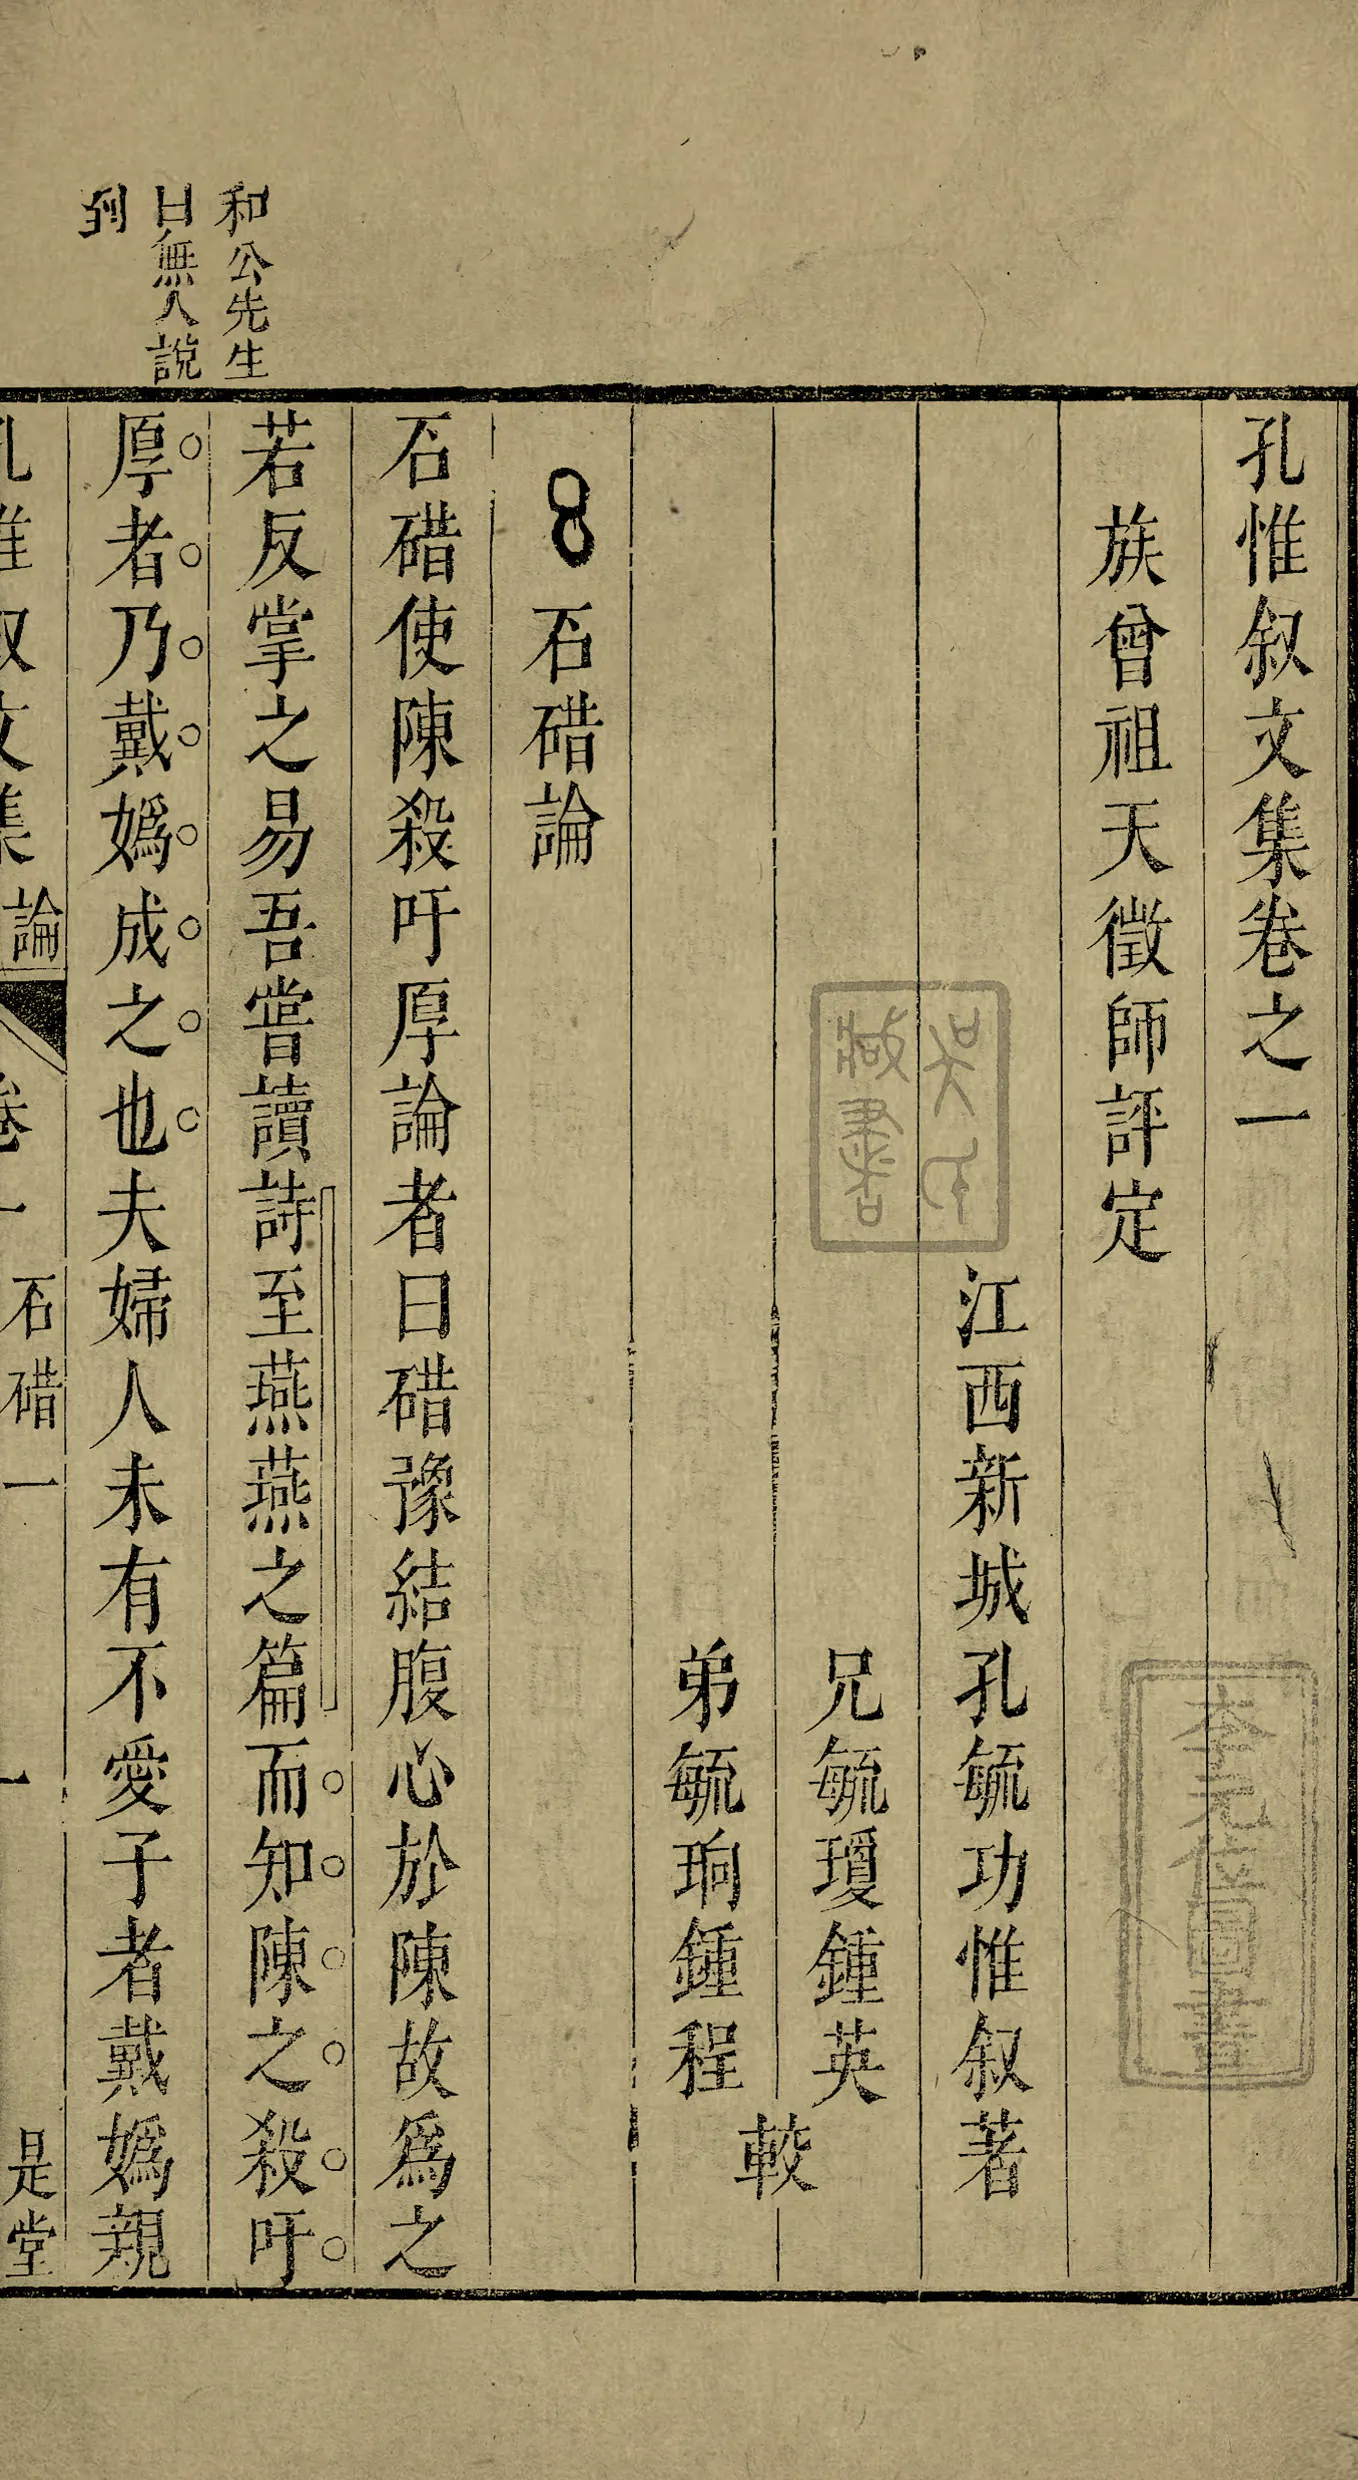 孔惟叙文集卷之一
族曾祖天徵師評定
江西新城孔毓功惟叙著
兄毓瓊鍾英
弟毓珦鍾程
較
石碏論
石碏使陳殺吁厚論者曰碏豫結腹心於陳故爲之
若反掌之易吾嘗讀詩至燕燕之篇而知陳之殺吁
厚者乃戴嬀成之也夫婦人未有不愛子者戴嬀親
和公先生
曰無人說
到
孔惟叙文集
論
卷一
石碏一
一
是堂
李元位圖書
藏書